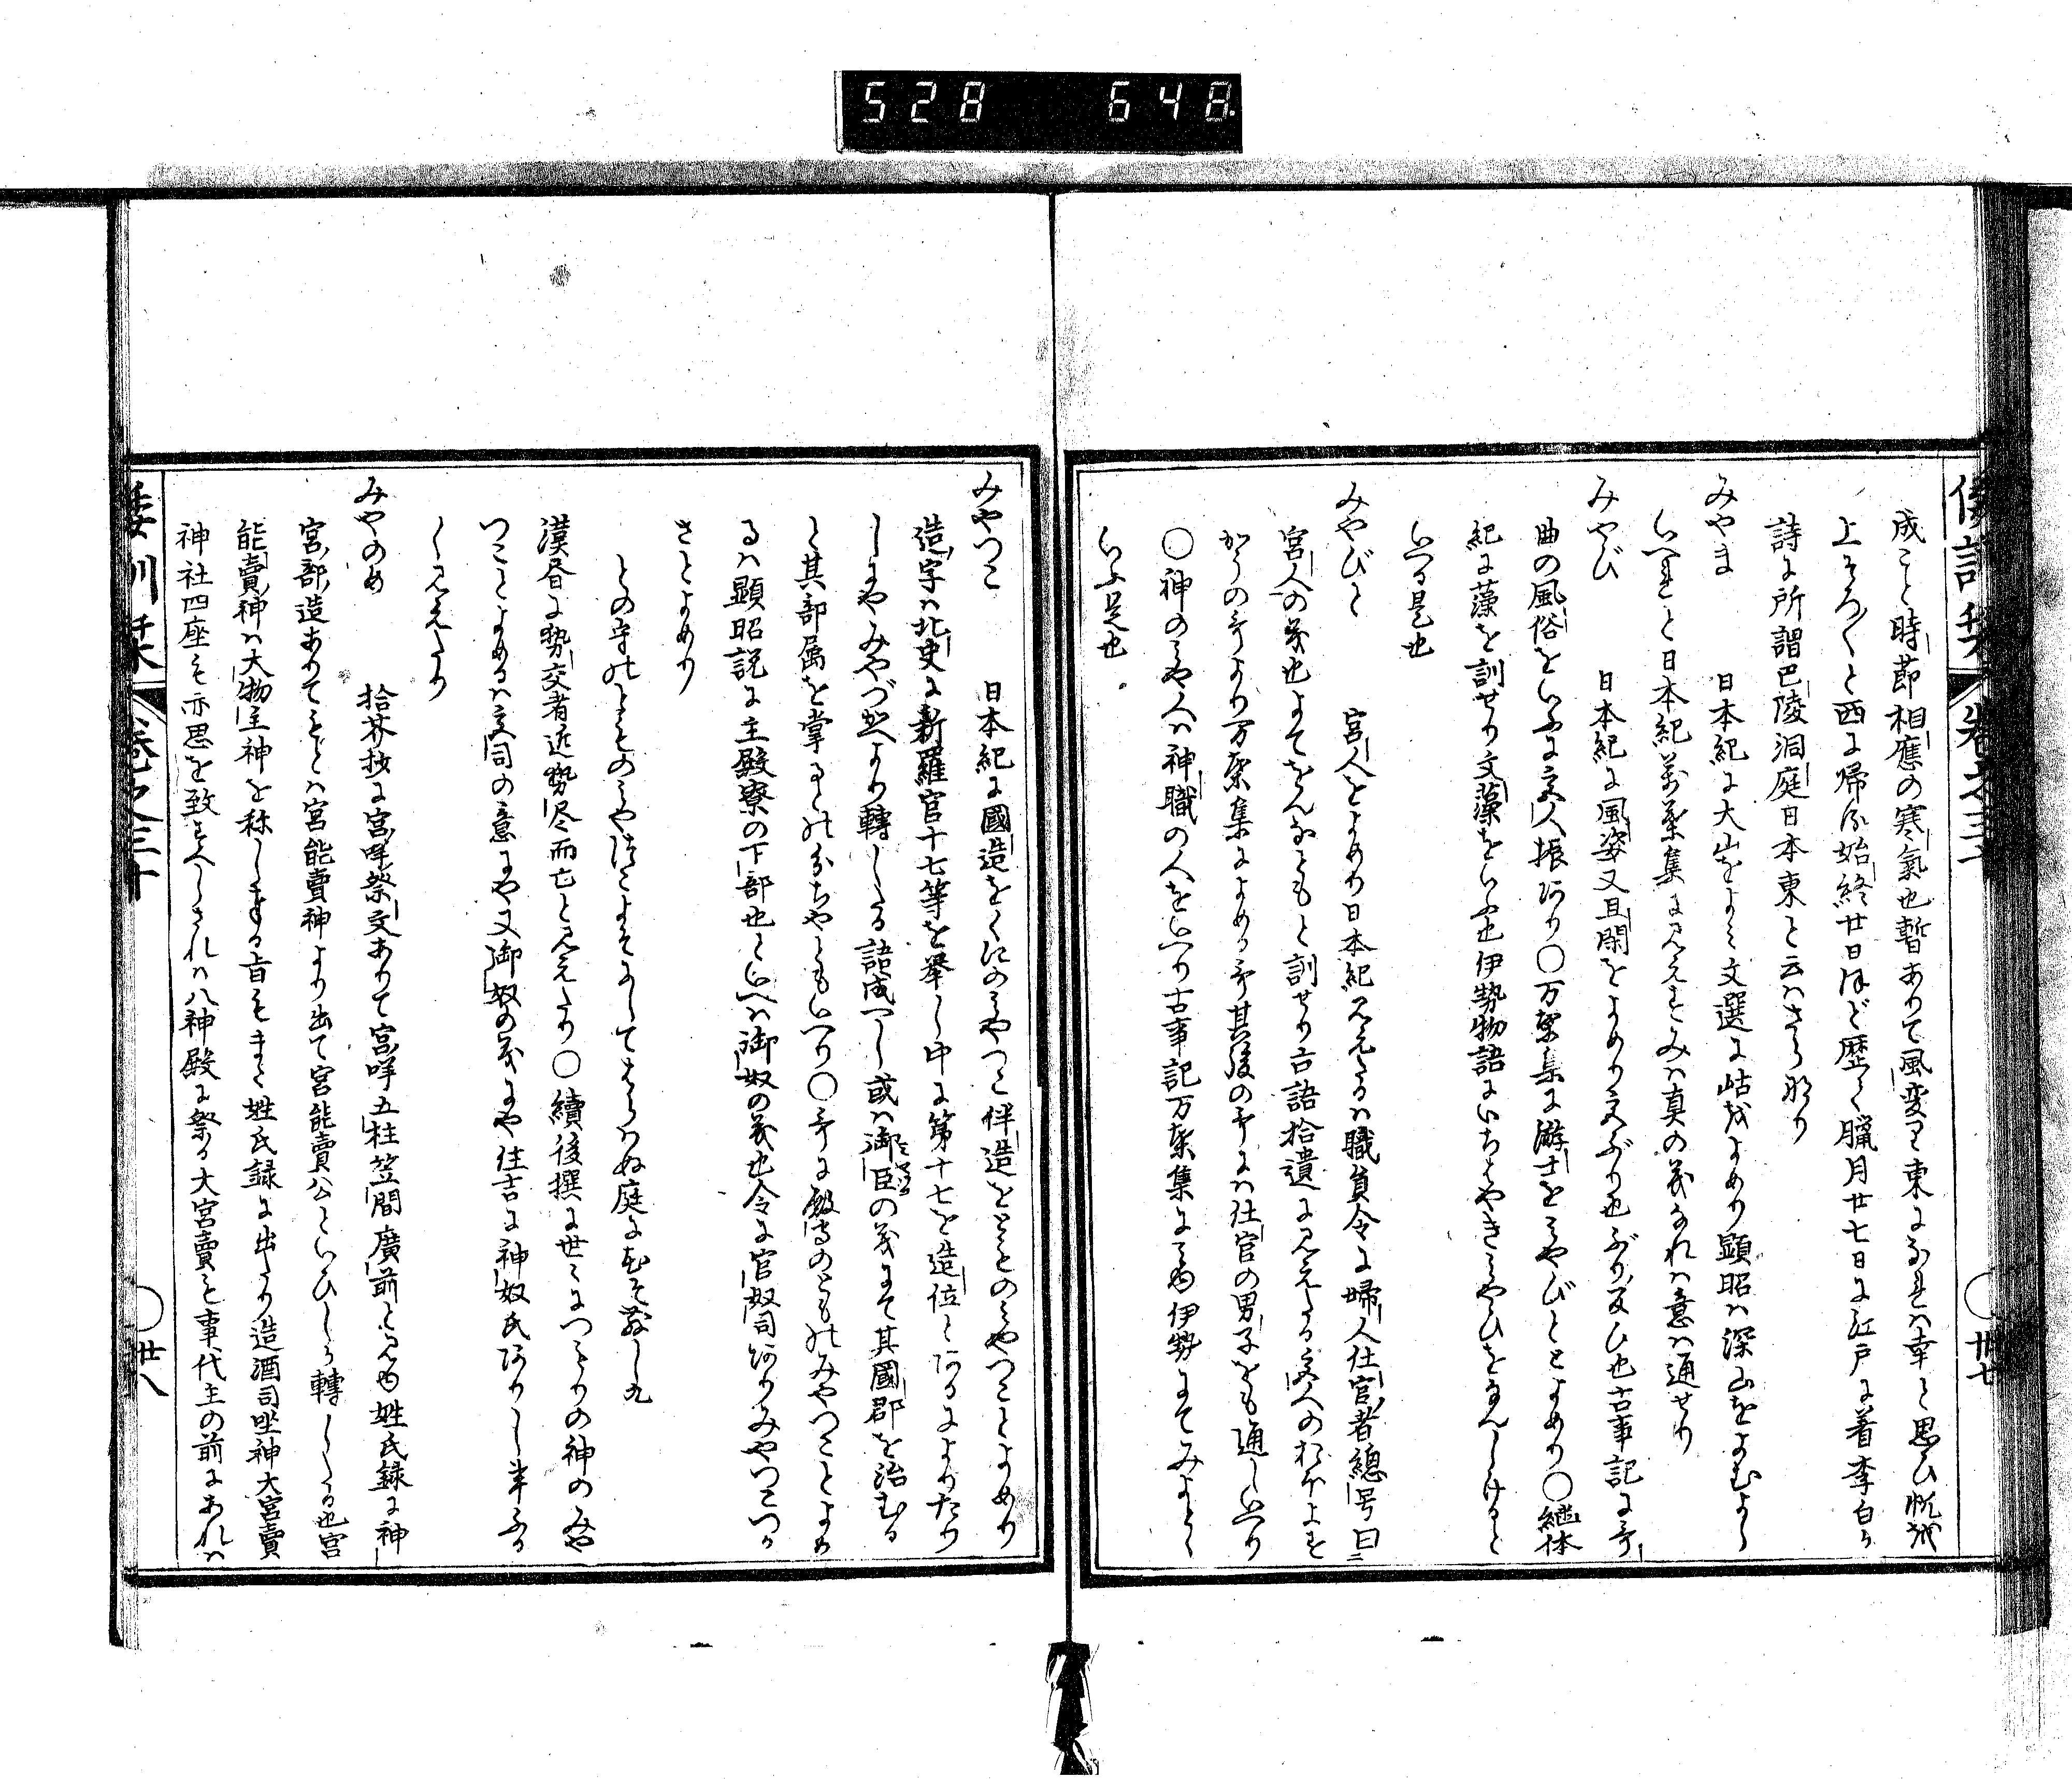 528 648
倭訓栞 巻之三十 ○ 卅七
成こと時節相應の寒氣也暫ありて風変り東になれは幸と思ひ帆を
上そろ〱と西に帰る始終廿日ほど歴て臘月廿七日に江戸に着李白か
詩に所謂巴陵洞庭日本東と云はさる所り
みやま 日本紀に大山をよミ文選に岵をよめり顕昭は深山をよむよし
いへれと日本紀万葉集に見えすみは真の義なれは意は通せり
みやび 日本紀に風姿又且閑をよめり宮ぶり也ぶり反ひ也古事記に哥
曲の風俗をいふに宮人振あり○万葉集に游士をみやびとよめり○継体
紀に藻を訓せり文藻をいふ也伊勢物語にいちはやきみやひをなんしけると
いへる是也
みやびと 宮人をよめり日本紀に見えたるは職員令に婦人仕官者總号曰
宮人の義也よてをんなともと訓せり古語拾遺に見えたる宮人のおほよそ
からの哥より万葉集によめる哥其後の哥には仕官の男子をも通しいへり
○神のみや人は神職の人をいへり古事記万葉集に見ゆ伊勢にてみよとと
いふ是也
みやつこ 日本紀に國造をくにのみやつこ伴造をとものみやつことよめり
造字は北史に新羅官十七等を挙し中に第十七を造位とあるによりたり
しにやみやづかへより轉したる語成へし或は御臣の義にて其國郡を治むる
と其部属を掌るとの分ちやともいへり○哥に殿守のとものみやつことよめ
るは顕昭説に主殿寮の下部也といへは御奴の義也令に官奴司ありみやつこつか
さとよめり
とのもりのとものみやつこよそにしてはらはぬ庭に花そ散しれ
漢書に勢交者近勢尽而亡と見えたり○續後撰に世々につゝもりの神のみや
つことよめるは宮司の意にや又御奴の義にや住吉に神奴氏ありし事ふる
く見えたり
みやのめ 拾芥抄に宮咩祭文ありて宮咩五柱笠間廣前と見ゆ姓氏録に神
宮部造ありてもとは宮能賣神より出て宮能賣公といひしか轉したる也宮
能賣神は大物主神を称しまつる旨もまた姓氏録に出たり造酒司坐神大宮賣
神社四座も亦思を致すへしされは八神殿に祭る大宮賣も事代主の前にあれは
倭訓栞 巻之三十 ○ 卅八